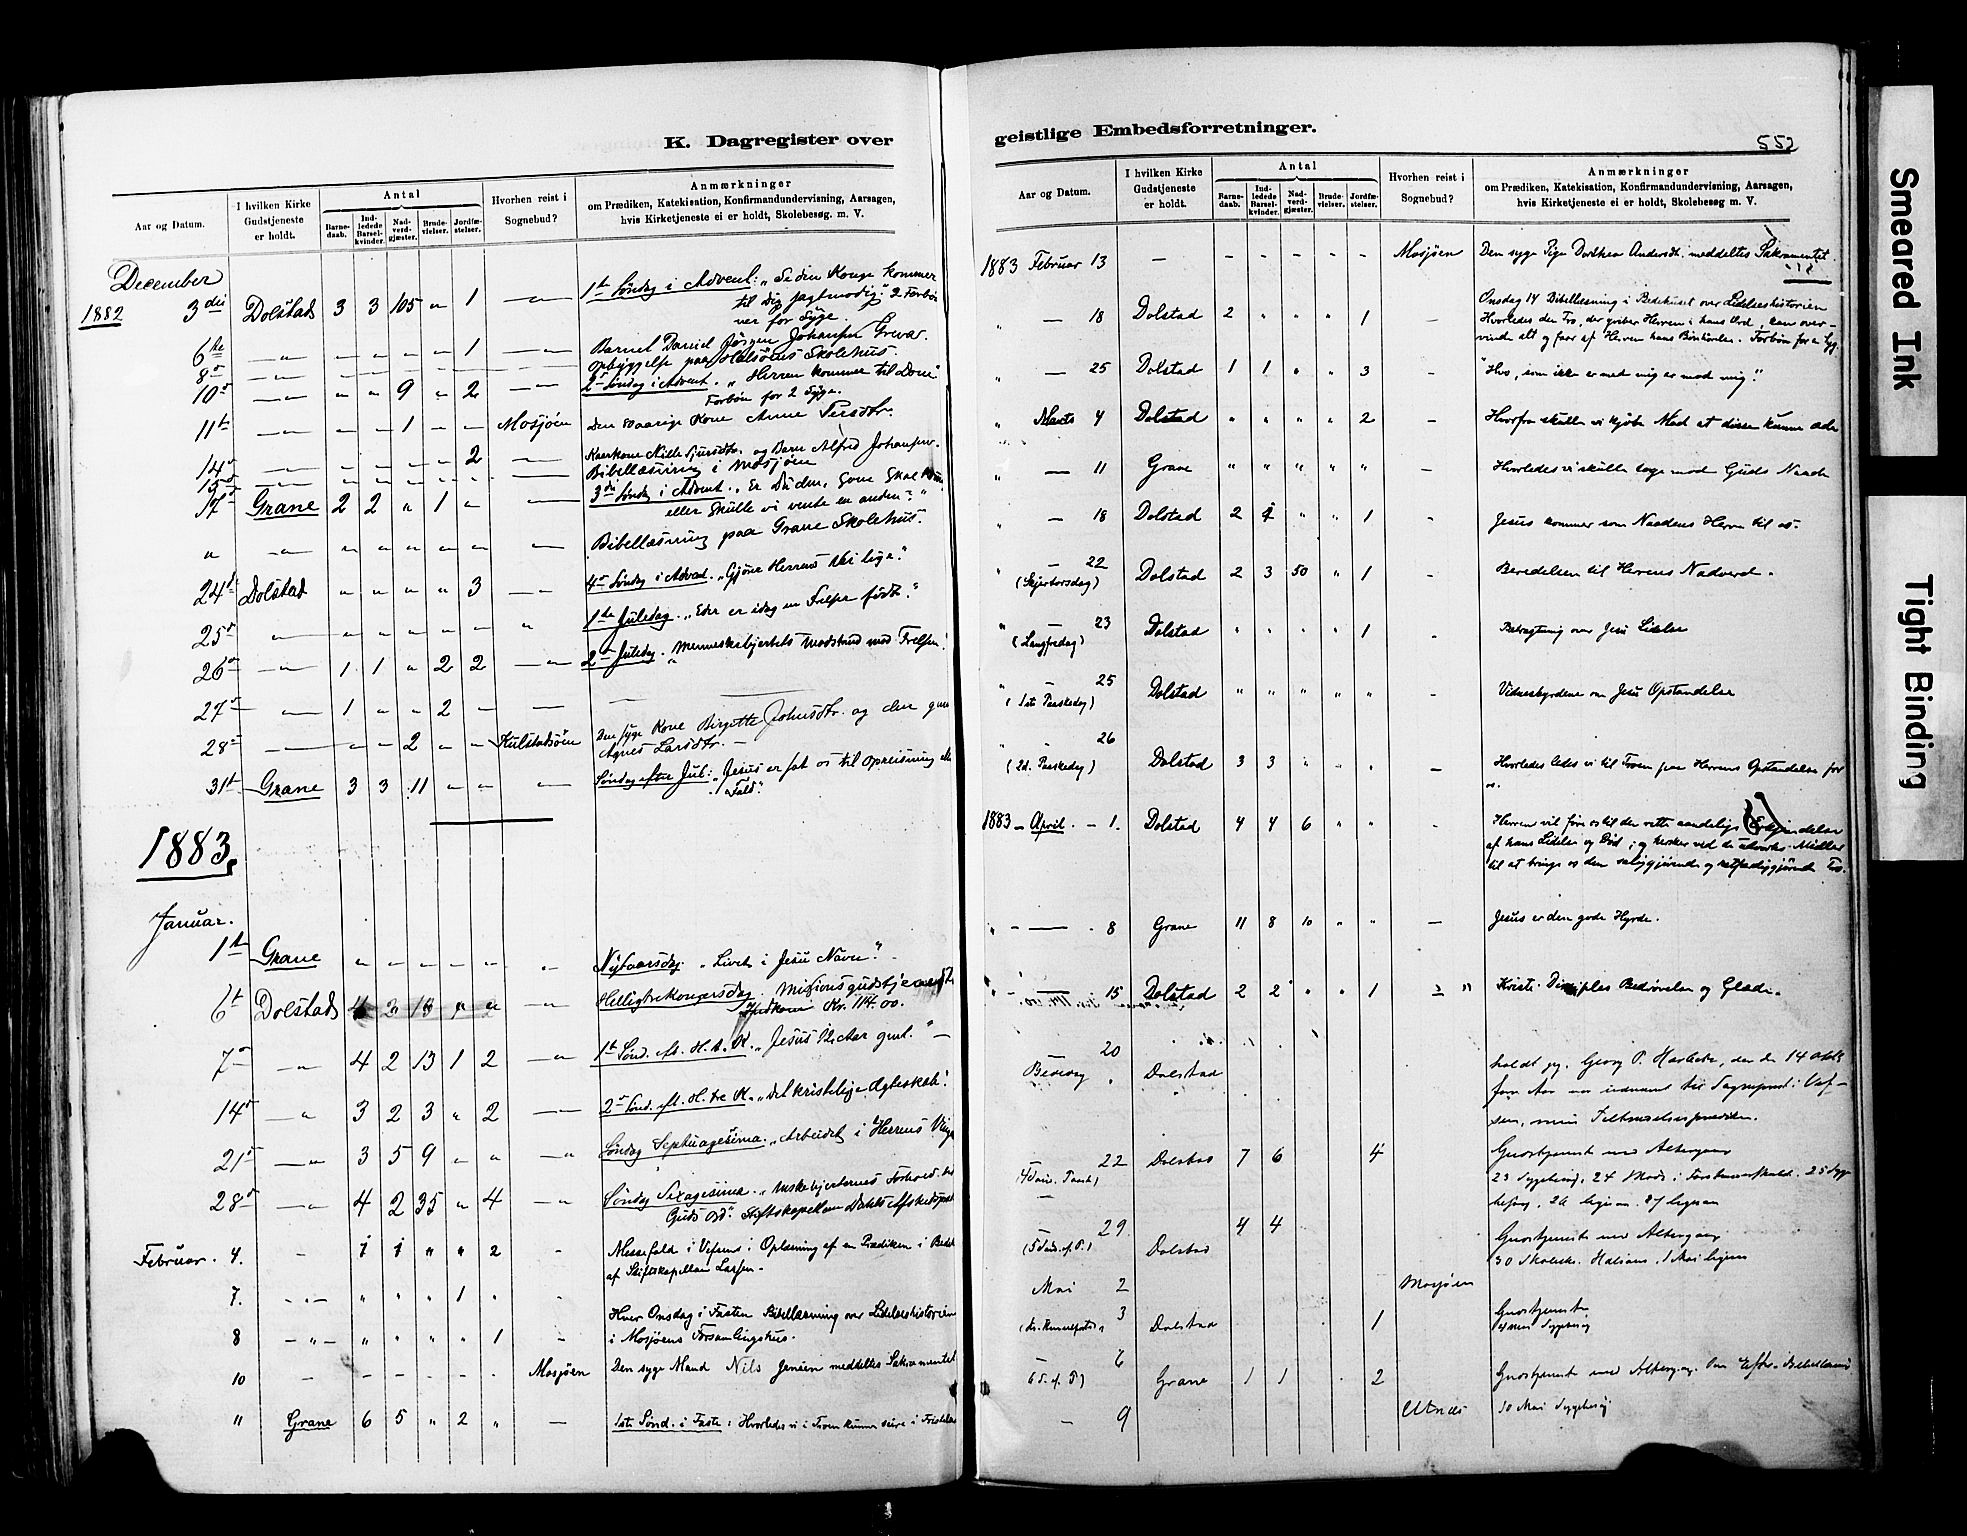 K. Dagregister over
Aar og Datum.
I hvilken Kirke Gudstjeneste er holdt.
Antal
Barnedaab.
Indledede Barselkvinder.
Nadverdgjæster.
Brudevielser.
Jordfæstelser.
Hvorhen reist i Sognebud?
Anmærkninger
om Prædiken, Katekisation, Konfirmandundervisning, Aarsagen,
hvis Kirketjeneste ei er holdt, Skolebesøg. m. V.
December
1882 3die Dolstad 3 3 105 " 1 — " — 1ste Søndag i Advent: „Se din Konge kommer
til dig sagtmodig" 2 Forbøn
ner for Syge.
6te — " — 1 Barnet Daniel Jørgen Johansen Grevar.
8de — " — Opbyggelse paa Skolehus.
10de — " — " " 9 " 2 2den Søndag i Advent. „Herren kommer til Dom"
Forbøn for 2 Syge.
11te — " — 1 Mosjøen Den Kone Anne
14de — " — 2 og Barn Alfred Johansen.
15de — " — Bibellæsning i Mosjøen
17de Grane 2 2 " 1 " 3die Søndag i Advent. „Er Du den, som skal
eller skulle vi vente en anden?"
" — " — Bibellæsning paa Grane Skolehus.
24de Dolstad " " " " 3 4de Søndag i Advent. „Gjører Herrens Vei lige."
25de — " — 1ste Juledag. „Eder er idag en Frelser født."
26de — " — 1 1 " 2 2 2den Juledag. „Menneskehjertets Modstand mod Frelsen.
27de — " — 1 " " 2 —
28de — " — 2 Kulstadsjøen Den syge Kone Birgitte Johnsdtr. og den
Agnes Larsdtr. —
31te Grane 3 3 11 " " Søndag efter Jul: „Jesus er sat os til Opreisning
Fald."
1883.
Januar.
1ste Grane " " " " " Nytaarsdag. „Livet i Jesu Navn."
6te Dolstad 4 2 18 " " Helligtrekongersdag. Missionsgudstjeneste
Kr. 114.00.
7de — " 4 2 13 1 2 — " 1ste Sønd. eft. H. t. K. „Jesus 12 Aar gml." —
14de — " 3 2 3 " 2 2den Sønd. eft. H. tre K. „Det kristelige Ægteskab".
21de — " 3 5 9 " " — " Søndag Septuagesima. „Arbeidet i Herrens
28de — " 4 2 35 " 4 — " Søndag Sexagesima.
Guds Ord". Stiftskapellan
Februar. 4. - 1 1 " " 2 - Messefald i Vefsen; Oplæsning af en Prædiken i
af Stiftskapellan Larsen.
7. - " - " " " 1 " - Hver Onsdag i Fasten Bibellæsning over Lidelseshistorien
8 - " - " " " " 1 - i Mosjøens Forsamlingshus.
10 - - - - - - Mosjøen Den syge Mand Nils Jensen meddeltes Sakramentet
" Grane 6 5 " 2 " - 1ste Sønd. i Faste: Hvorledes vi i Troen kunne seire i
geistlige Embedsforretninger.
552
Aar og Datum.
I hvilken Kirke Gudstjeneste er holdt.
Antal
Barnedaab.
Indledede Barselkvinder.
Nadverdgjæster.
Brudevielser.
Jordfæstelser.
Hvorhen reist i Sognebud?
Anmærkninger
om Prædiken, Katekisation, Konfirmandundervisning, Aarsagen,
hvis Kirketjeneste ei er holdt, Skolebesøg m. V.
1883 Februar 13 — - - - - - Mosjøen Den syge Pige Dorthea Andersdt. meddeltes Sakramentet.
Onsdag 14 Bibellæsning i Bedehuset over Lidelseshistorien
" — 18 Dolstad 2 " " " 1 - Hvorledes den Tro, der griber Herren i hans Ord, kan over-
vinde alt og faar af Herren hans Bønhørelse. Forbøn for en Syg.
" — 25 Dolstad 1 1 " " 3 - "Hvo, som ikke er med mig er mod mig."
" Marts 4 Dolstad " " " " 2 - Hvorfra skulle vi kjøbe Mad at disse kunne æde
" — 11 Grane " " " " " - Hvorledes vi skulle tage mod Guds Naade
" — 18 Dolstad 2 1 " " 1 - Jesus kommer som Naadens Herre til os.
" — 22 (Skjærtorsdag) Dolstad 2 3 50 " 1 - Beredelsen til Herrens Nadverd.
" 23 (Langfredag) Dolstad " " " " 1 - Betragtning over Jesu Lidelse
" 25 (1ste Paaskedag) Dolstad " " " " " - Vidnesbyrdene om Jesu Opstandelse
" 26 (2d. Paaskedag) Dolstad 3 3 " " " — Hvorledes ledes vi til Troen paa Herrens Opstandelse for
os.
1883 — April. — 1. Dolstad 4 4 6 " " - Herren vil føre os til den rette aandelige Erkjendelse
af hans Lidelse og Død, og virker ved de Midler
til at bringe os den saliggjørende og retfærdiggjørende Tro.
" — 8 Grane 11 8 10 " " — Jesus er den gode Hyrde.
" — 15 Dolstad 2 2 " " 1 Kristi Disciples Bedrøvelse og Glæde.
20 Bededag Dolstad holdt jeg, Georg P. den 14
f. Aar var udnævnt til Sognepræst i Vef-
sen, min Tiltrædelsesprædiken.
22 (4 Paaske) Dolstad 7 6 4 Gudstjeneste med Altergang
23 Sygebesøg, 24 Møde i Forstanderskabet. 25 Syge
besøg, 26 ligesaa. 27 ligesaa
29 (5 Sønd. ef. P.) Dolstad 4 4 Gudstjeneste med Altergang
30 1 Mai ligesaa
Mai 2 Mosjøen
3 (Kr. Himmelfartsd.) Dolstad 1 Gudstjeneste
4 Mai Sygebesøg
6 (6 S. ef. P.) Grane 1 1 2 Gudstjeneste med Altergang.
— 9 Utnæs 10 Mai Sygebesøg
Smeared Ink
Tight Binding